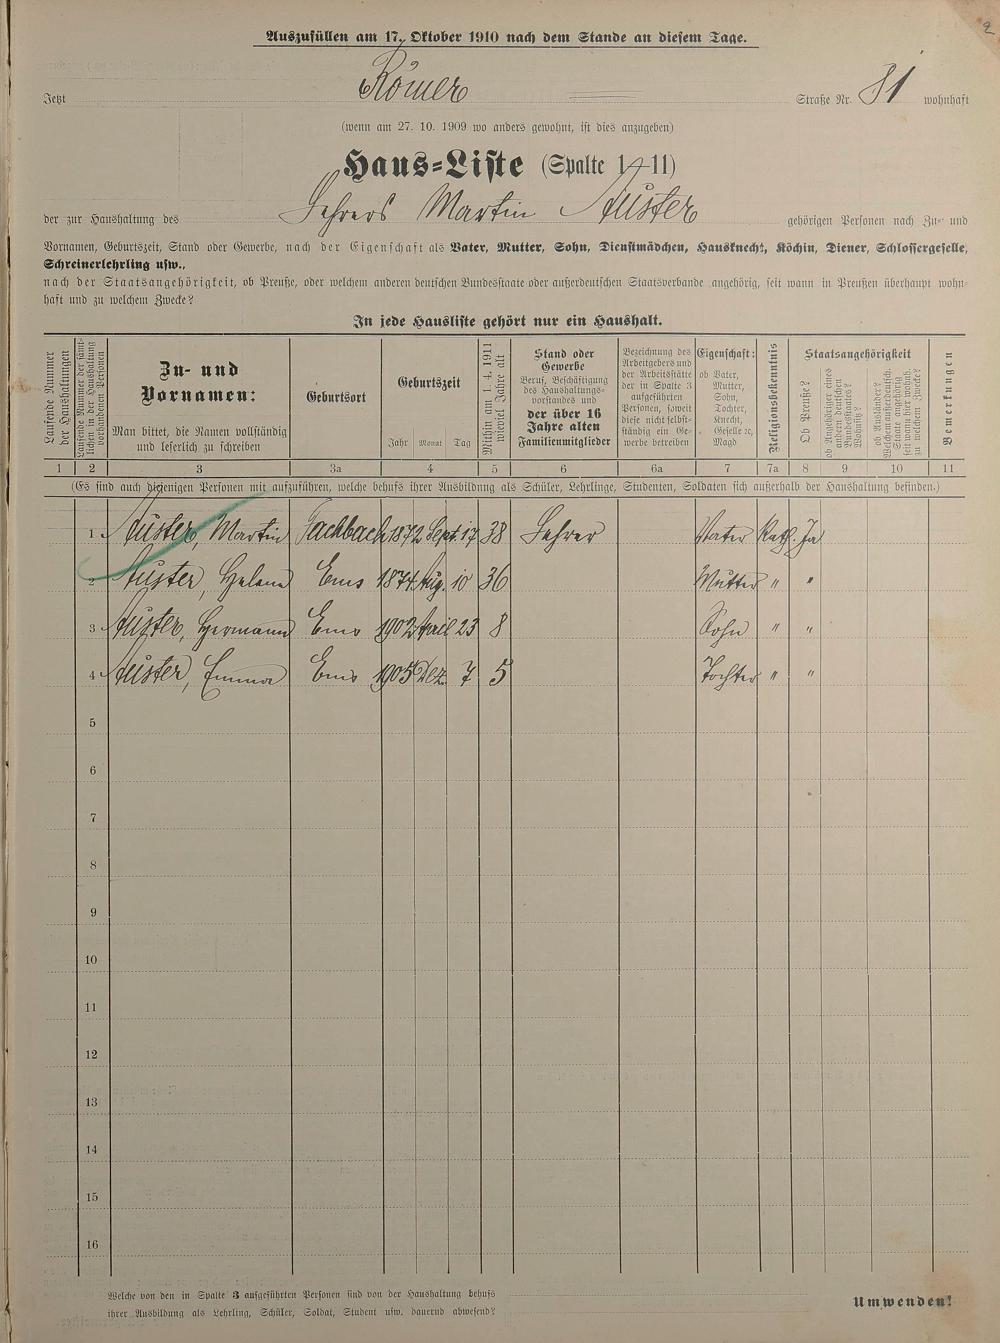 2
Auszufüllen am 17. Oktober 1910 nach dem Stande an diesem Tage.
Jetzt Römer Straße Nr. 81 wohnhaft
(wenn am 27. 10. 1909 wo anders gewohnt, ist dies anzugeben)
Haus-Liste (Spalte 1–11)
der zur Haushaltung des Lehrers Martin Auster gehörigen Personen nach Zu- und
Vornamen, Geburtszeit, Stand oder Gewerbe, nach der Eigenschaft als Vater, Mutter, Sohn, Dienstmädchen, Hausknecht, Köchin, Diener, Schlossergeselle,
Schreinerlehrling usw.,
nach der Staatsangehörigkeit, ob Preuße, oder welchem anderen deutschen Bundesstaate oder außerdeutschen Staatsverbande angehörig, seit wann in Preußen überhaupt wohn-
haft und zu welchem Zwecke?
In jede Hausliste gehört nur ein Haushalt.
Laufende Nummer der Haushaltungen
Laufende Nummer der sämt-
lichen in der Haushaltung
vorhandenen Personen
Zu- und
Vornamen:
Man bittet, die Namen vollständig
und leserlich zu schreiben
Geburtsort
Geburtszeit
Jahr Monat Tag
Mithin am 1. 4. 1911
wieviel Jahre alt
Stand oder
Gewerbe
Beruf, Beschäftigung
des Haushaltungs-
vorstandes und
der über 16
Jahre alten
Familienmitglieder
Bezeichnung des
Arbeitgebers und
der Arbeitsstätte
der in Spalte 3
aufgeführten
Personen, soweit
diese nicht selbst-
ständig ein Ge-
werbe betreiben
Eigenschaft:
ob Vater,
Mutter,
Sohn,
Tochter,
Knecht,
Geselle ꝛc,
Magd
Religionsbekenntnis
Staatsangehörigkeit
Ob Preuße?
ob Angehöriger eines
andern deutschen
Bundesstaates?
Wohnitz?
ob Ausländer?
Welchem außerdeutsch.
Staate angehörig
seit wann hier wohnh.
zu welchem Zwecke?
Bemerkungen
1 2 3 3a 4 5 6 6a 7 7a 8 9 10 11
(Es sind auch diejenigen Personen mit aufzuführen, welche behufs ihrer Ausbildung als Schüler, Lehrlinge, Studenten, Soldaten sich außerhalb der Haushaltung befinden.)
1 Auster, Martin Fachbach 1872 Sept. 17 38 Lehrer Vater Kath. Ja
2 Auster, Helene Ems 1874 Aug. 10 36 Mutter " "
3 Auster, Hermann Ems 1902 April 23 8 Sohn " "
4 Auster, Emma Ems 1905 Dez. 7 5 Tochter " "
5
6
7
8
9
10
11
12
13
14
15
16
Welche von den in Spalte 3 aufgeführten Personen sind von der Haushaltung behufs
ihrer Ausbildung als Lehrling, Schüler, Soldat, Student usw. dauernd abwesend?
Umwenden!